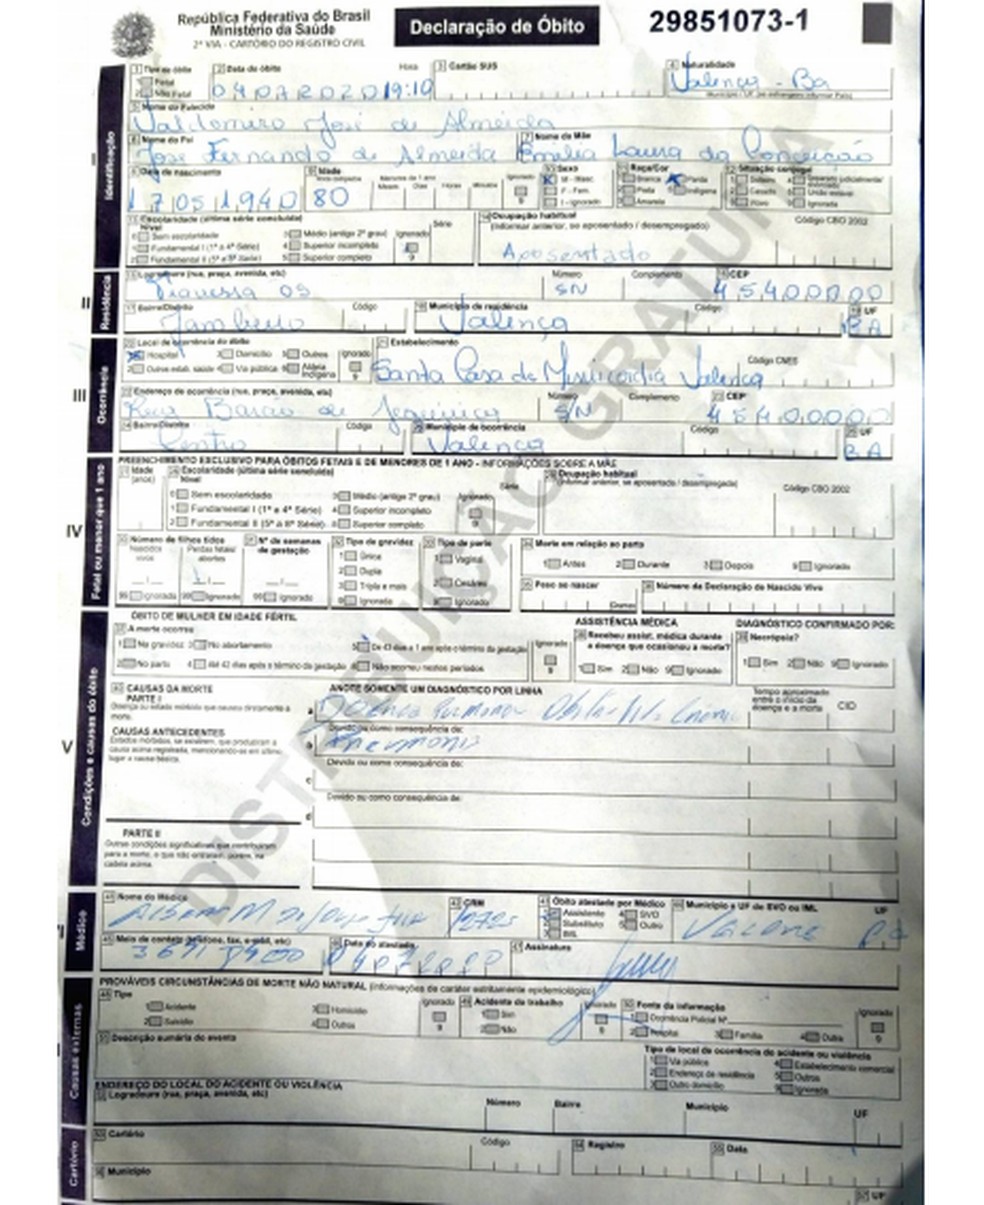 República Federativa do Brasil
Ministério da Saúde
2ª VIA - CARTÓRIO DO REGISTRO CIVIL
Declaração de Óbito
29851073-1
DISTRIBUIÇÃO GRATUITA
I Identificação
1 Tipo de óbito 2 Data do óbito Hora 3 Cartão SUS 4 Naturalidade
1 Fetal
2 Não Fetal 04072020 19:10 Valença - Ba
Município / UF (se estrangeiro informar País)
5 Nome do Falecido
Valdomiro José de Almeida
6 Nome do Pai 7 Nome da Mãe
José Fernando de Almeida Emilia Laura da Conceição
8 Data de nascimento 9 Idade Anos completos Menores de 1 ano Meses Dias Horas Minutos Ignorado 10 Sexo 11 Raça/Cor 12 Situação conjugal
17051940 80 9
M - Masc. F - Fem. I - Ignorado
1 Branca 2 Preta 3 Amarela 4 Parda 5 Indígena
13 Escolaridade (última série concluída) Série 14 Ocupação habitual Código CBO 2002
Nível (informar anterior, se aposentado / desempregado)
0 Sem escolaridade 3 Médio (antigo 2º grau) Ignorado
1 Fundamental I (1ª a 4ª Série) 4 Superior incompleto
2 Fundamental II (5ª a 8ª Série) 5 Superior completo 9 Aposentado
II Residência
15 Logradouro (rua, praça, avenida, etc) Número Complemento 16 CEP
Travessa 09 SN 45400000
17 Bairro/Distrito Código 18 Município de residência Código 19 UF
Jambeiro Valença BA
III Ocorrência
20 Local de ocorrência do óbito 21 Estabelecimento
1 Hospital 3 Domicílio 5 Outros Ignorado Código CNES
2 Outros estab. saúde 4 Via pública 6 Aldeia Indígena 9 Santa Casa de Misericordia Valença
22 Endereço de ocorrência (rua, praça, avenida, etc) Número Complemento 23 CEP
Rua Barão de S/N 45400000
24 Bairro/Distrito Código 25 Município de ocorrência Código 26 UF
Centro Valença BA
IV Fetal ou menor que 1 ano
PREENCHIMENTO EXCLUSIVO PARA ÓBITOS FETAIS E DE MENORES DE 1 ANO - INFORMAÇÕES SOBRE A MÃE
27 Idade (anos) 28 Escolaridade (última série concluída) Nível Série 29 Ocupação habitual (informar anterior, se aposentada / desempregada) Código CBO 2002
0 Sem escolaridade 3 Médio (antigo 2º grau) Ignorado
1 Fundamental I (1ª a 4ª Série) 4 Superior incompleto
2 Fundamental II (5ª a 8ª Série) 5 Superior completo 9
30 Número de filhos tidos 31 Nº de semanas de gestação 32 Tipo de gravidez 33 Tipo de parto 34 Morte em relação ao parto
Nascidos vivos Perdas fetais/ abortos
1 Única 2 Dupla 3 Tripla e mais 9 Ignorada
1 Vaginal 2 Cesáreo 9 Ignorado
1 Antes 2 Durante 3 Depois 9 Ignorado
99 Ignorado 99 Ignorado 99 Ignorado
35 Peso ao nascer Gramas 36 Número da Declaração de Nascido Vivo
V Condições e causas do óbito
ÓBITO DE MULHER EM IDADE FÉRTIL ASSISTÊNCIA MÉDICA DIAGNÓSTICO CONFIRMADO POR:
37 A morte ocorreu 38 Recebeu assist. médica durante a doença que ocasionou a morte? 39 Necrópsia?
1 Na gravidez 3 No abortamento 5 De 43 dias a 1 ano após o término da gestação Ignorado
2 No parto 4 Até 42 dias após o término da gestação 8 Não ocorreu nestes períodos 9
1 Sim 2 Não 9 Ignorado 1 Sim 2 Não 9 Ignorado
40 CAUSAS DA MORTE ANOTE SOMENTE UM DIAGNÓSTICO POR LINHA Tempo aproximado entre o início da doença e a morte CID
PARTE I
Doença ou estado mórbido que causou diretamente a morte.
a Doença Pulmonar
Devido ou como consequência de:
CAUSAS ANTECEDENTES
Estados mórbidos, se existirem, que produziram a causa acima registrada, mencionando-se em último lugar a causa básica.
b Pneumonia
Devido ou como consequência de:
c
Devido ou como consequência de:
d
PARTE II
Outras condições significativas que contribuíram para a morte, e que não entraram, porém, na cadeia acima.
Médico
41 Nome do Médico 42 CRM 43 Óbito atestado por Médico 44 Município e UF do SVO ou IML UF
1 Assistente 2 Substituto 3 IML 4 SVO 5 Outro
45 Meio de contato (telefone, fax, e-mail, etc) 46 Data do atestado 47 Assinatura
Causas externas
PROVÁVEIS CIRCUNSTÂNCIAS DE MORTE NÃO NATURAL (Informações de caráter estritamente epidemiológico)
48 Tipo Ignorado 49 Acidente do trabalho Ignorado 50 Fonte da informação Ignorado
1 Acidente 3 Homicídio 1 Sim 1 Ocorrência Policial Nº
2 Suicídio 4 Outros 9 2 Não 9 2 Hospital 3 Família 4 Outra 9
51 Descrição sumária do evento
Tipo de local de ocorrência do acidente ou violência
1 Via pública 4 Estabelecimento comercial
2 Endereço de residência 5 Outros
3 Outro domicílio 9 Ignorada
ENDEREÇO DO LOCAL DO ACIDENTE OU VIOLÊNCIA
52 Logradouro (rua, praça, avenida, etc) Número Bairro Município UF
Cartório
53 Cartório Código 54 Registro 55 Data
56 Município 57 UF